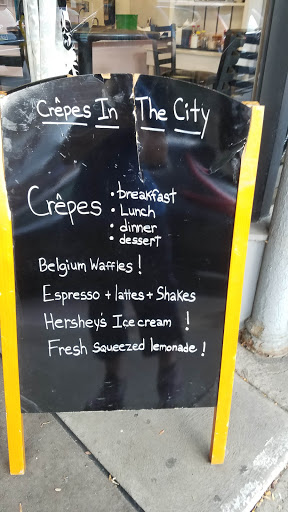 Crêpes In The City
Crêpes
• breakfast
• Lunch
• dinner
• dessert
Belgium Waffles!
Espresso + lattes + Shakes
Hershey's Ice cream !
Fresh Squeezed lemonade!